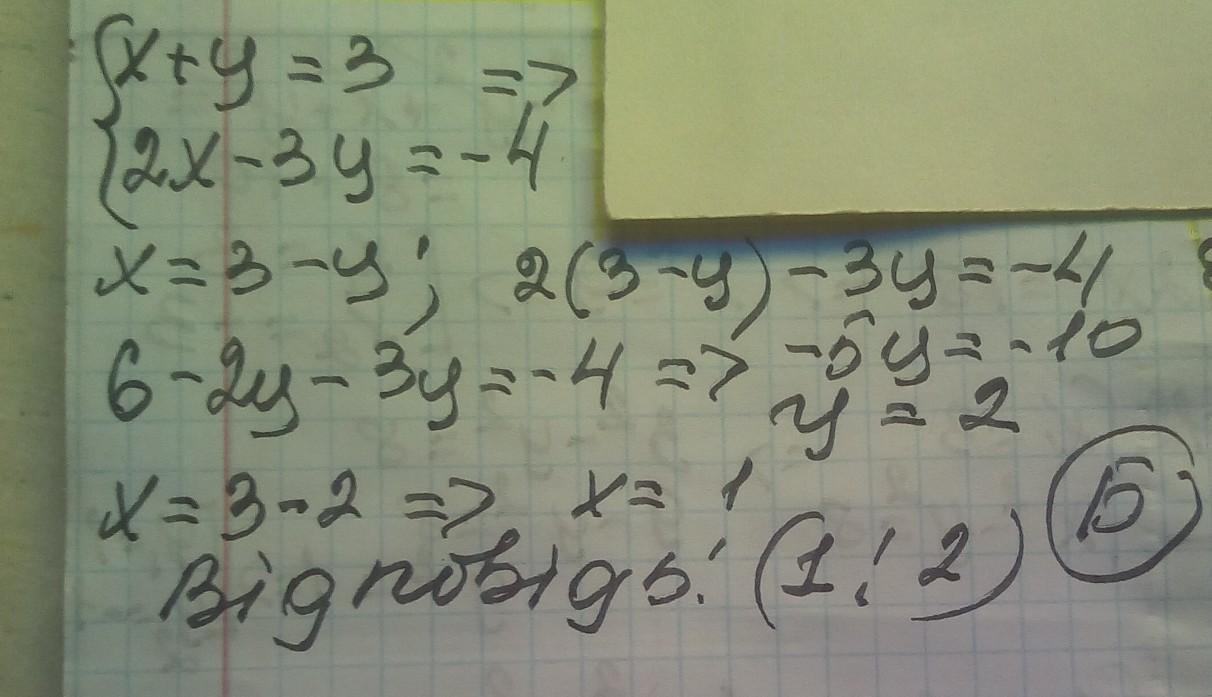 {x+y=3 =>
{2x-3y=-4
x=3-y; 2(3-y)-3y=-4
6-2y-3y=-4 => -5y=-10
y=2
x=3-2 => x=1
Відповідь: (1; 2) Б